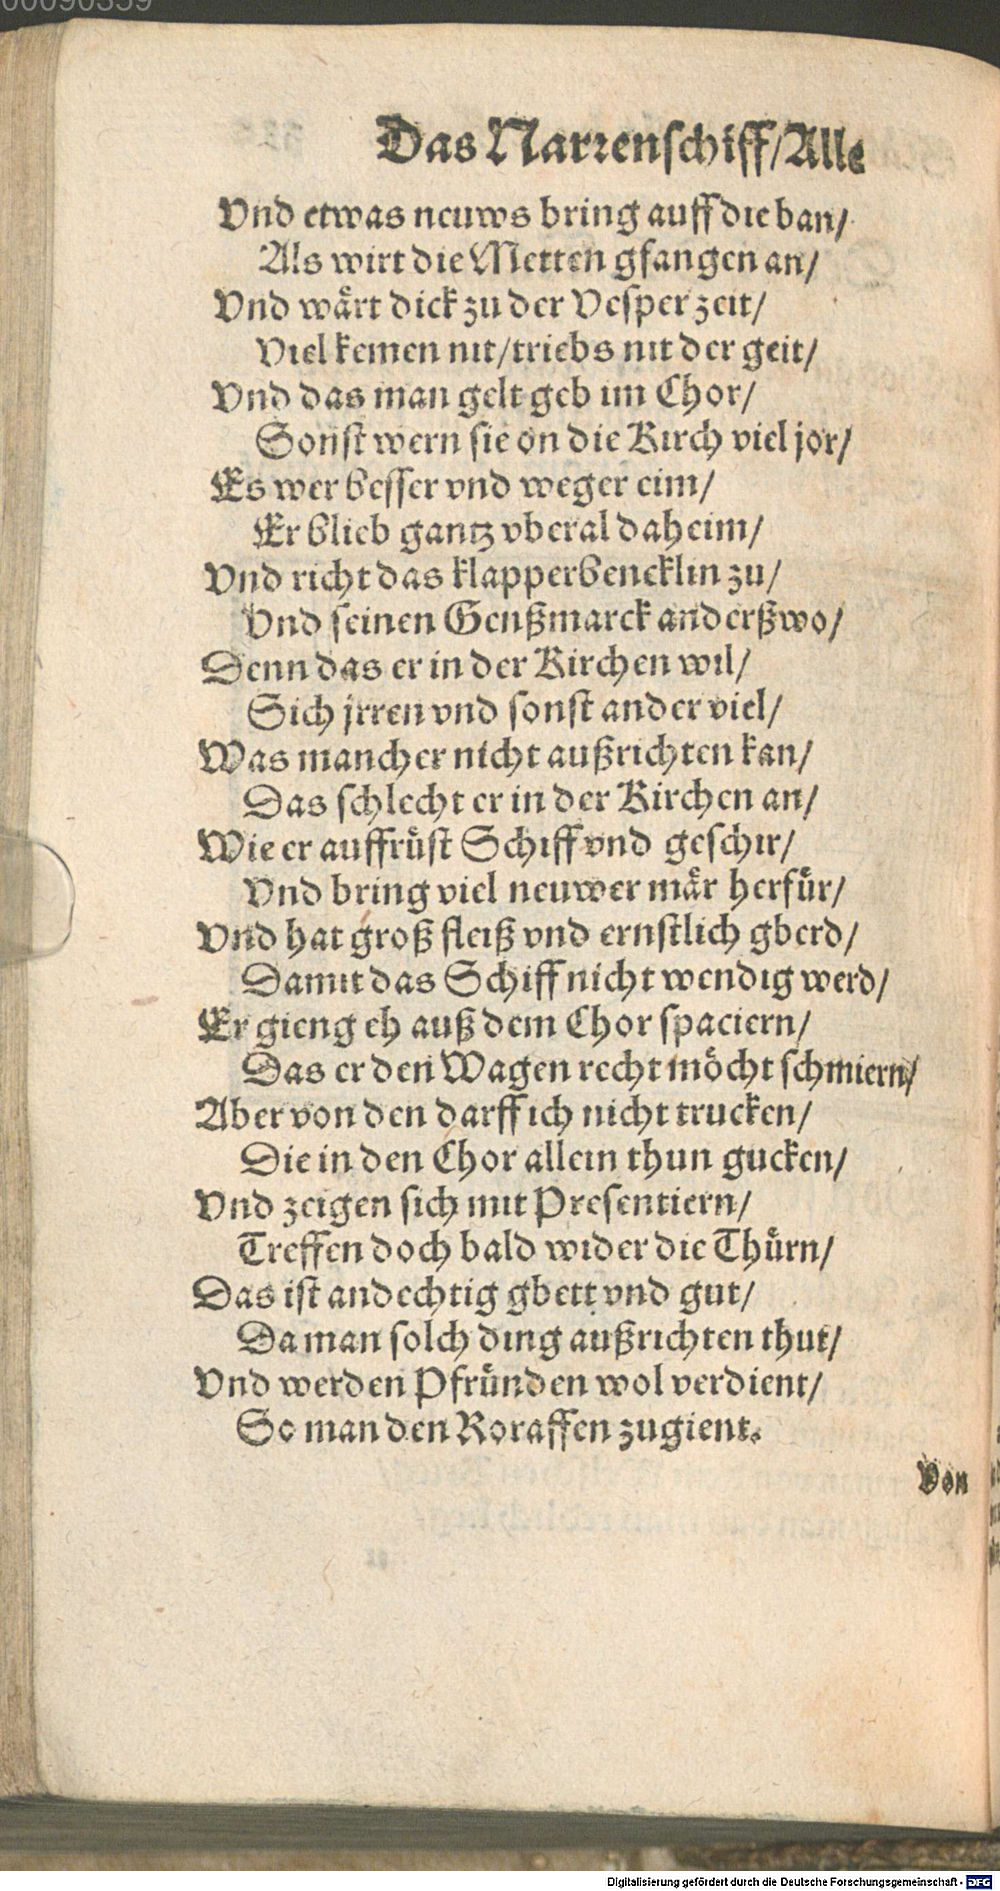 00090359
Das Narrenschiff/Alle
Vnd etwas neuws bring auff die ban/
Als wirt die Metten gfangen an/
Vnd wårt dick zu der Vesper zeit/
Viel kemen nit/triebs nit der geit/
Vnd das man gelt geb im Chor/
Sonst wern sie on die Kirch viel jor/
Es wer besser vnd weger eim/
Er blieb gantz vberal daheim/
Vnd richt das klapperbencklin zu/
Vnd seinen Genßmarck anderßwo/
Denn das er in der Kirchen wil/
Sich jrren vnd sonst ander viel/
Was mancher nicht außrichten kan/
Das schlecht er in der Kirchen an/
Wie er auffrüst Schiff vnd geschir/
Vnd bring viel neuwer mår herfür/
Vnd hat groß fleiß vnd ernstlich gberd/
Damit das Schiff nicht wendig werd/
Er gieng eh auß dem Chor spaciern/
Das er den Wagen recht möcht schmiern/
Aber von den darff ich nicht trucken/
Die in den Chor allein thun gucken/
Vnd zeigen sich mit Presentiern/
Treffen doch bald wider die Thürn/
Das ist andechtig gbett vnd gut/
Da man solch ding außrichten thut/
Vnd werden Pfründen wol verdient/
So man den Roraffen zugient.
Von
Digitalisierung gefördert durch die Deutsche Forschungsgemeinschaft - DFG